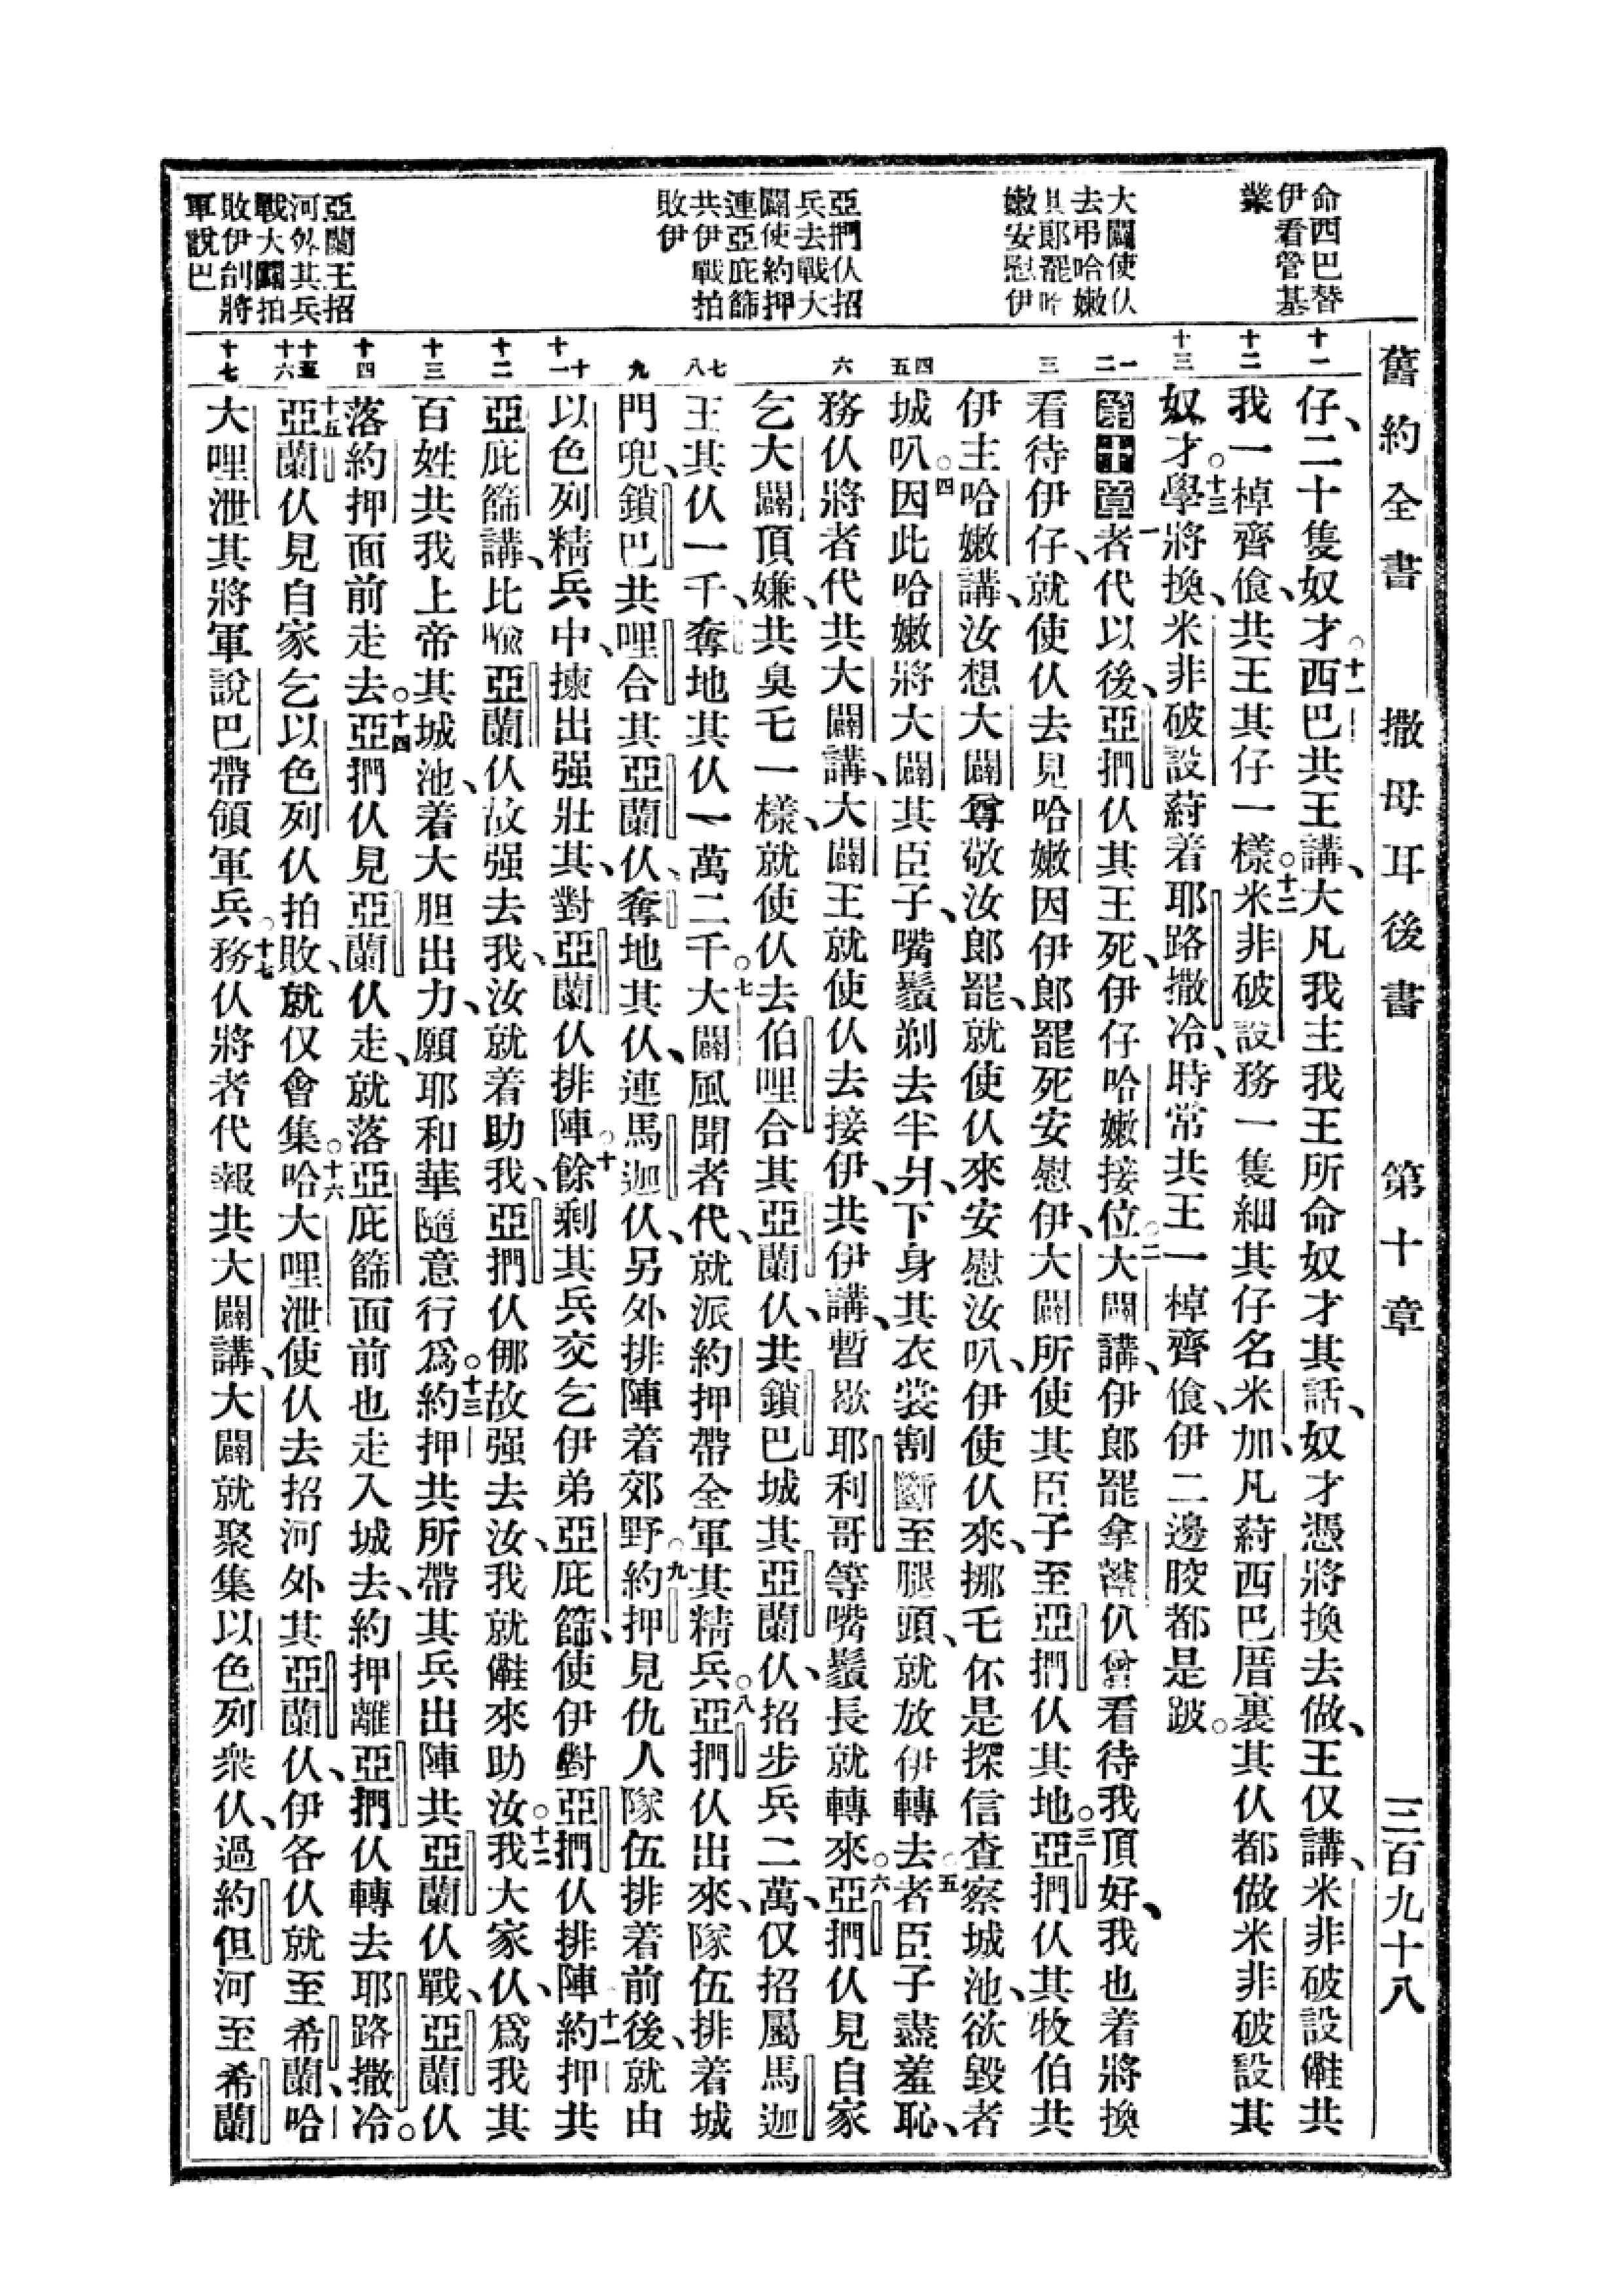 舊約全書 撒母耳後書 第十章 三百九十八
命西巴替
伊看管基
業
大闢使仸
去弔哈嫩
其郎罷
嫩安慰伊
亞捫仸招
兵去戰大
闢使約押
連亞庇篩
共伊戰拍
敗伊
亞蘭王招
河外其兵
戰大闢拍
敗伊刣將
軍說巴
十一
十二
十三
一
二
三
四
五
六
七
八
九
十
十一
十二
十三
十四
十五
十六
十七
仔、二十隻奴才。十一西巴共王講、大凡我主我王所命奴才其話、奴才憑將換去做、王仅講、米非破設㑼共
我一棹齊飡、共王其仔一樣。十二米非破設務一隻細其仔名米加、凡蒔西巴厝裏其仸都做米非破設其
奴才。十三學將換、米非破設蒔着耶路撒冷、時常共王一棹齊飡、伊二邊骹都是跛。
第十章一者代以後、亞捫仸其王死、伊仔哈嫩接位。二大闢講、伊郎罷拿轄仸曾看待我頂好、我也着將換
看待伊仔、就使仸去見哈嫩因伊郎罷死安慰伊、大闢所使其臣子至亞捫仸其地。三亞捫仸其牧伯共
伊主哈嫩講、汝想大闢尊敬汝郎罷、就使仸來安慰汝叭、伊使仸來、挪乇伓是探信查察城池、欲毀者
城叭。四因此哈嫩將大闢其臣子、嘴鬚剃去半爿、下身其衣裳割斷至腿頭、就放伊轉去。五者臣子盡羞恥、
務仸將者代共大闢講、大闢王就使仸去接伊、共伊講、暫歇耶利哥等嘴鬚長就轉來。六亞捫仸見自家
乞大闢頂嫌、共臭乇一樣、就使仸去伯哩合其亞蘭仸、共鎖巴城其亞蘭仸、招步兵二萬、仅招屬馬迦
王其仸一千、奪地其仸一萬二千。七大闢風聞者代、就派約押帶全軍其精兵。八亞捫仸出來、隊伍排着城
門兜、鎖巴共哩合其亞蘭仸、奪地其仸、連馬迦仸、另外排陣着郊野。九約押見仇人隊伍排着前後、就由
以色列精兵中、揀出强壯其、對亞蘭仸排陣。十餘剩其兵交乞伊弟亞庇篩、使伊對亞捫仸排陣。十一約押共
亞庇篩講、比喩亞蘭仸故强去我、汝就着助我、亞捫仸㑚故强去汝、我就㑼來助汝。十二我大家仸、爲我其
百姓共我上帝其城池、着大胆出力、願耶和華隨意行爲。十三約押共所帶其兵出陣共亞蘭仸戰、亞蘭仸
落約押面前走去。十四亞捫仸見亞蘭仸走、就落亞庇篩面前也走入城去、約押離亞捫仸轉去耶路撒冷。
十五亞蘭仸見自家乞以色列仸拍敗、就仅會集。十六哈大哩泄使仸去招河外其亞蘭仸、伊各仸就至希蘭、哈
大哩泄其將軍說巴帶領軍兵。十七務仸將者代報共大闢講、大闢就聚集以色列衆仸、過約但河至希蘭